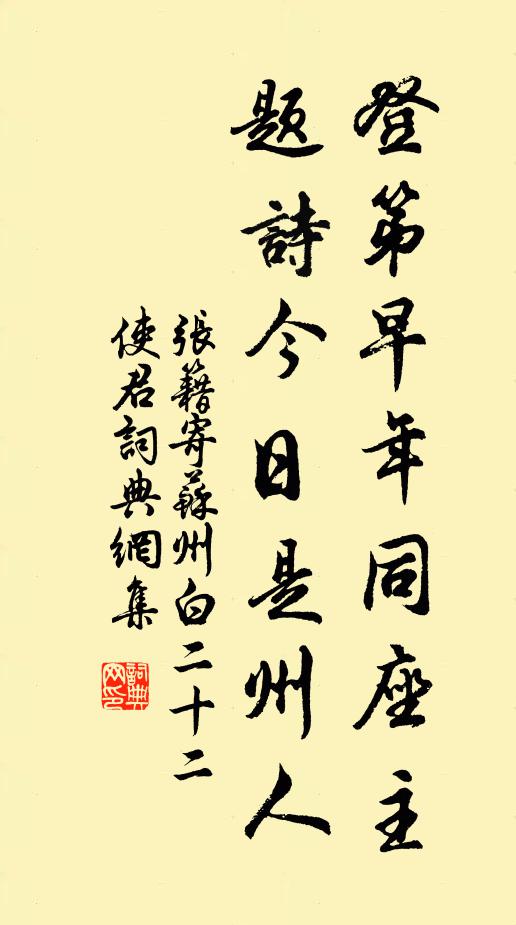 登第早年同座主
題詩今日是州人
張籍寄蘇州白二十二
使君詞典網集
詞典
网印